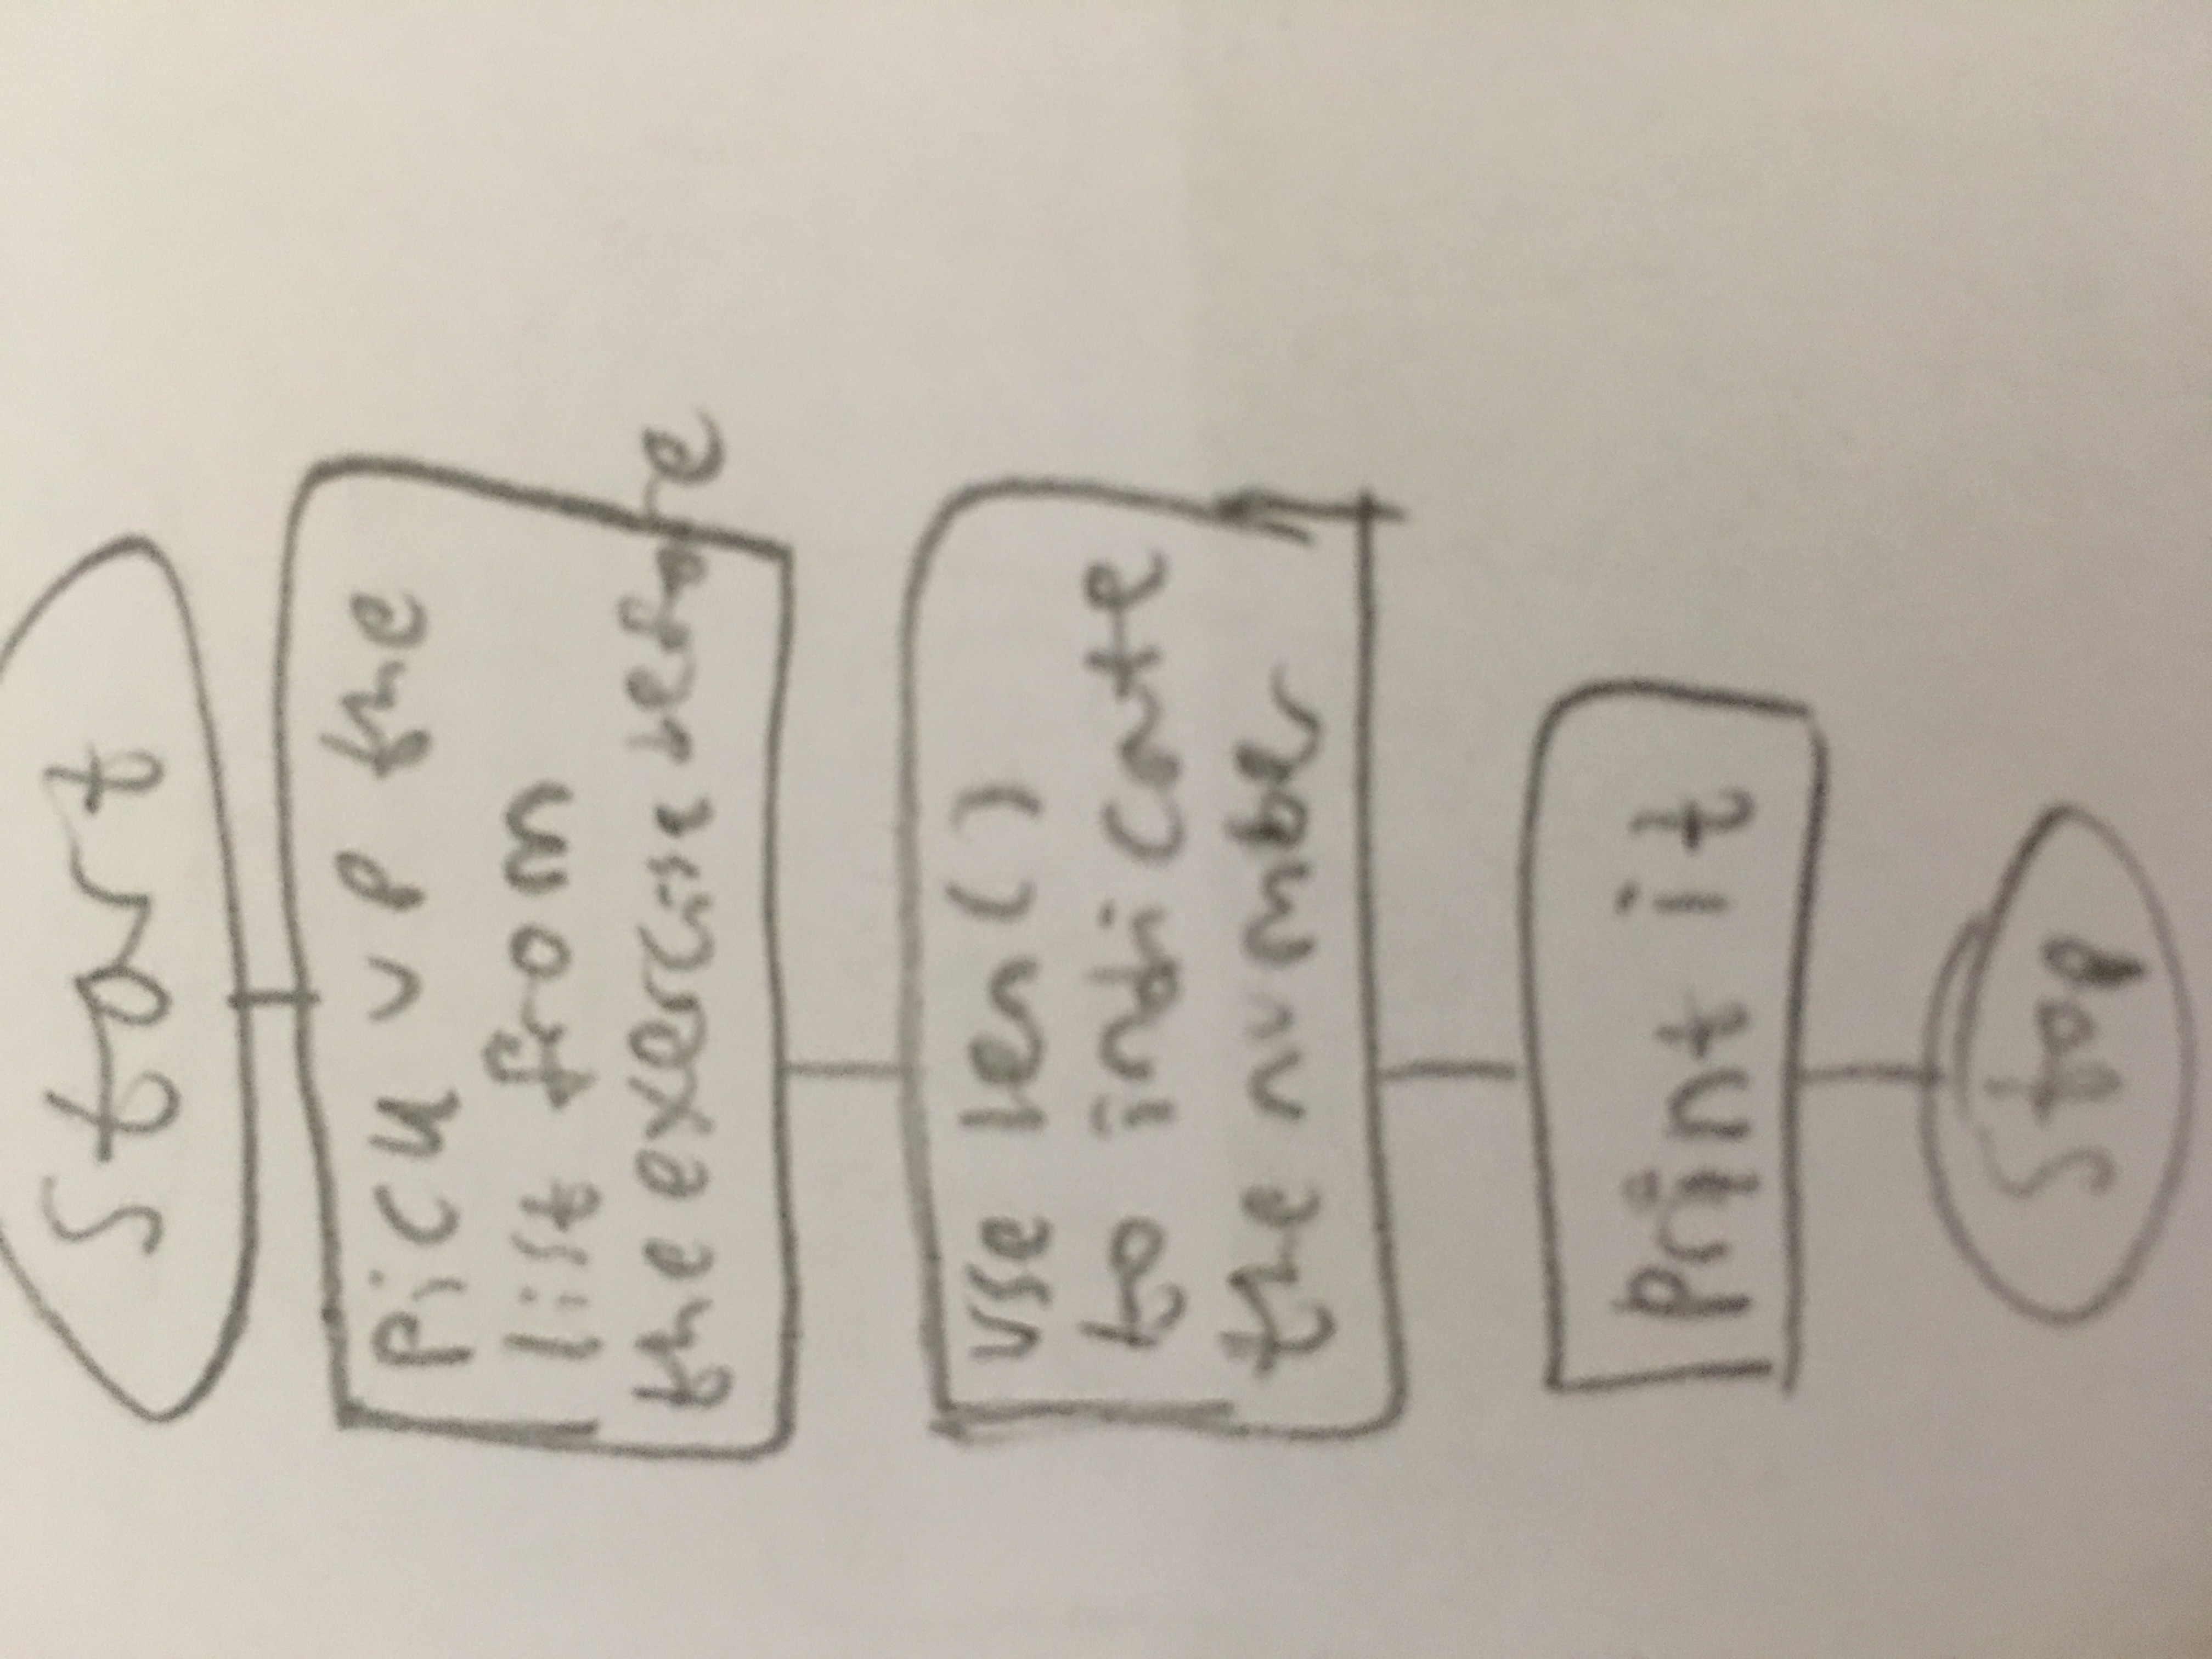 Start
Pick up the
list from
the exercise before
use len()
to indicate
the number
print it
Stop